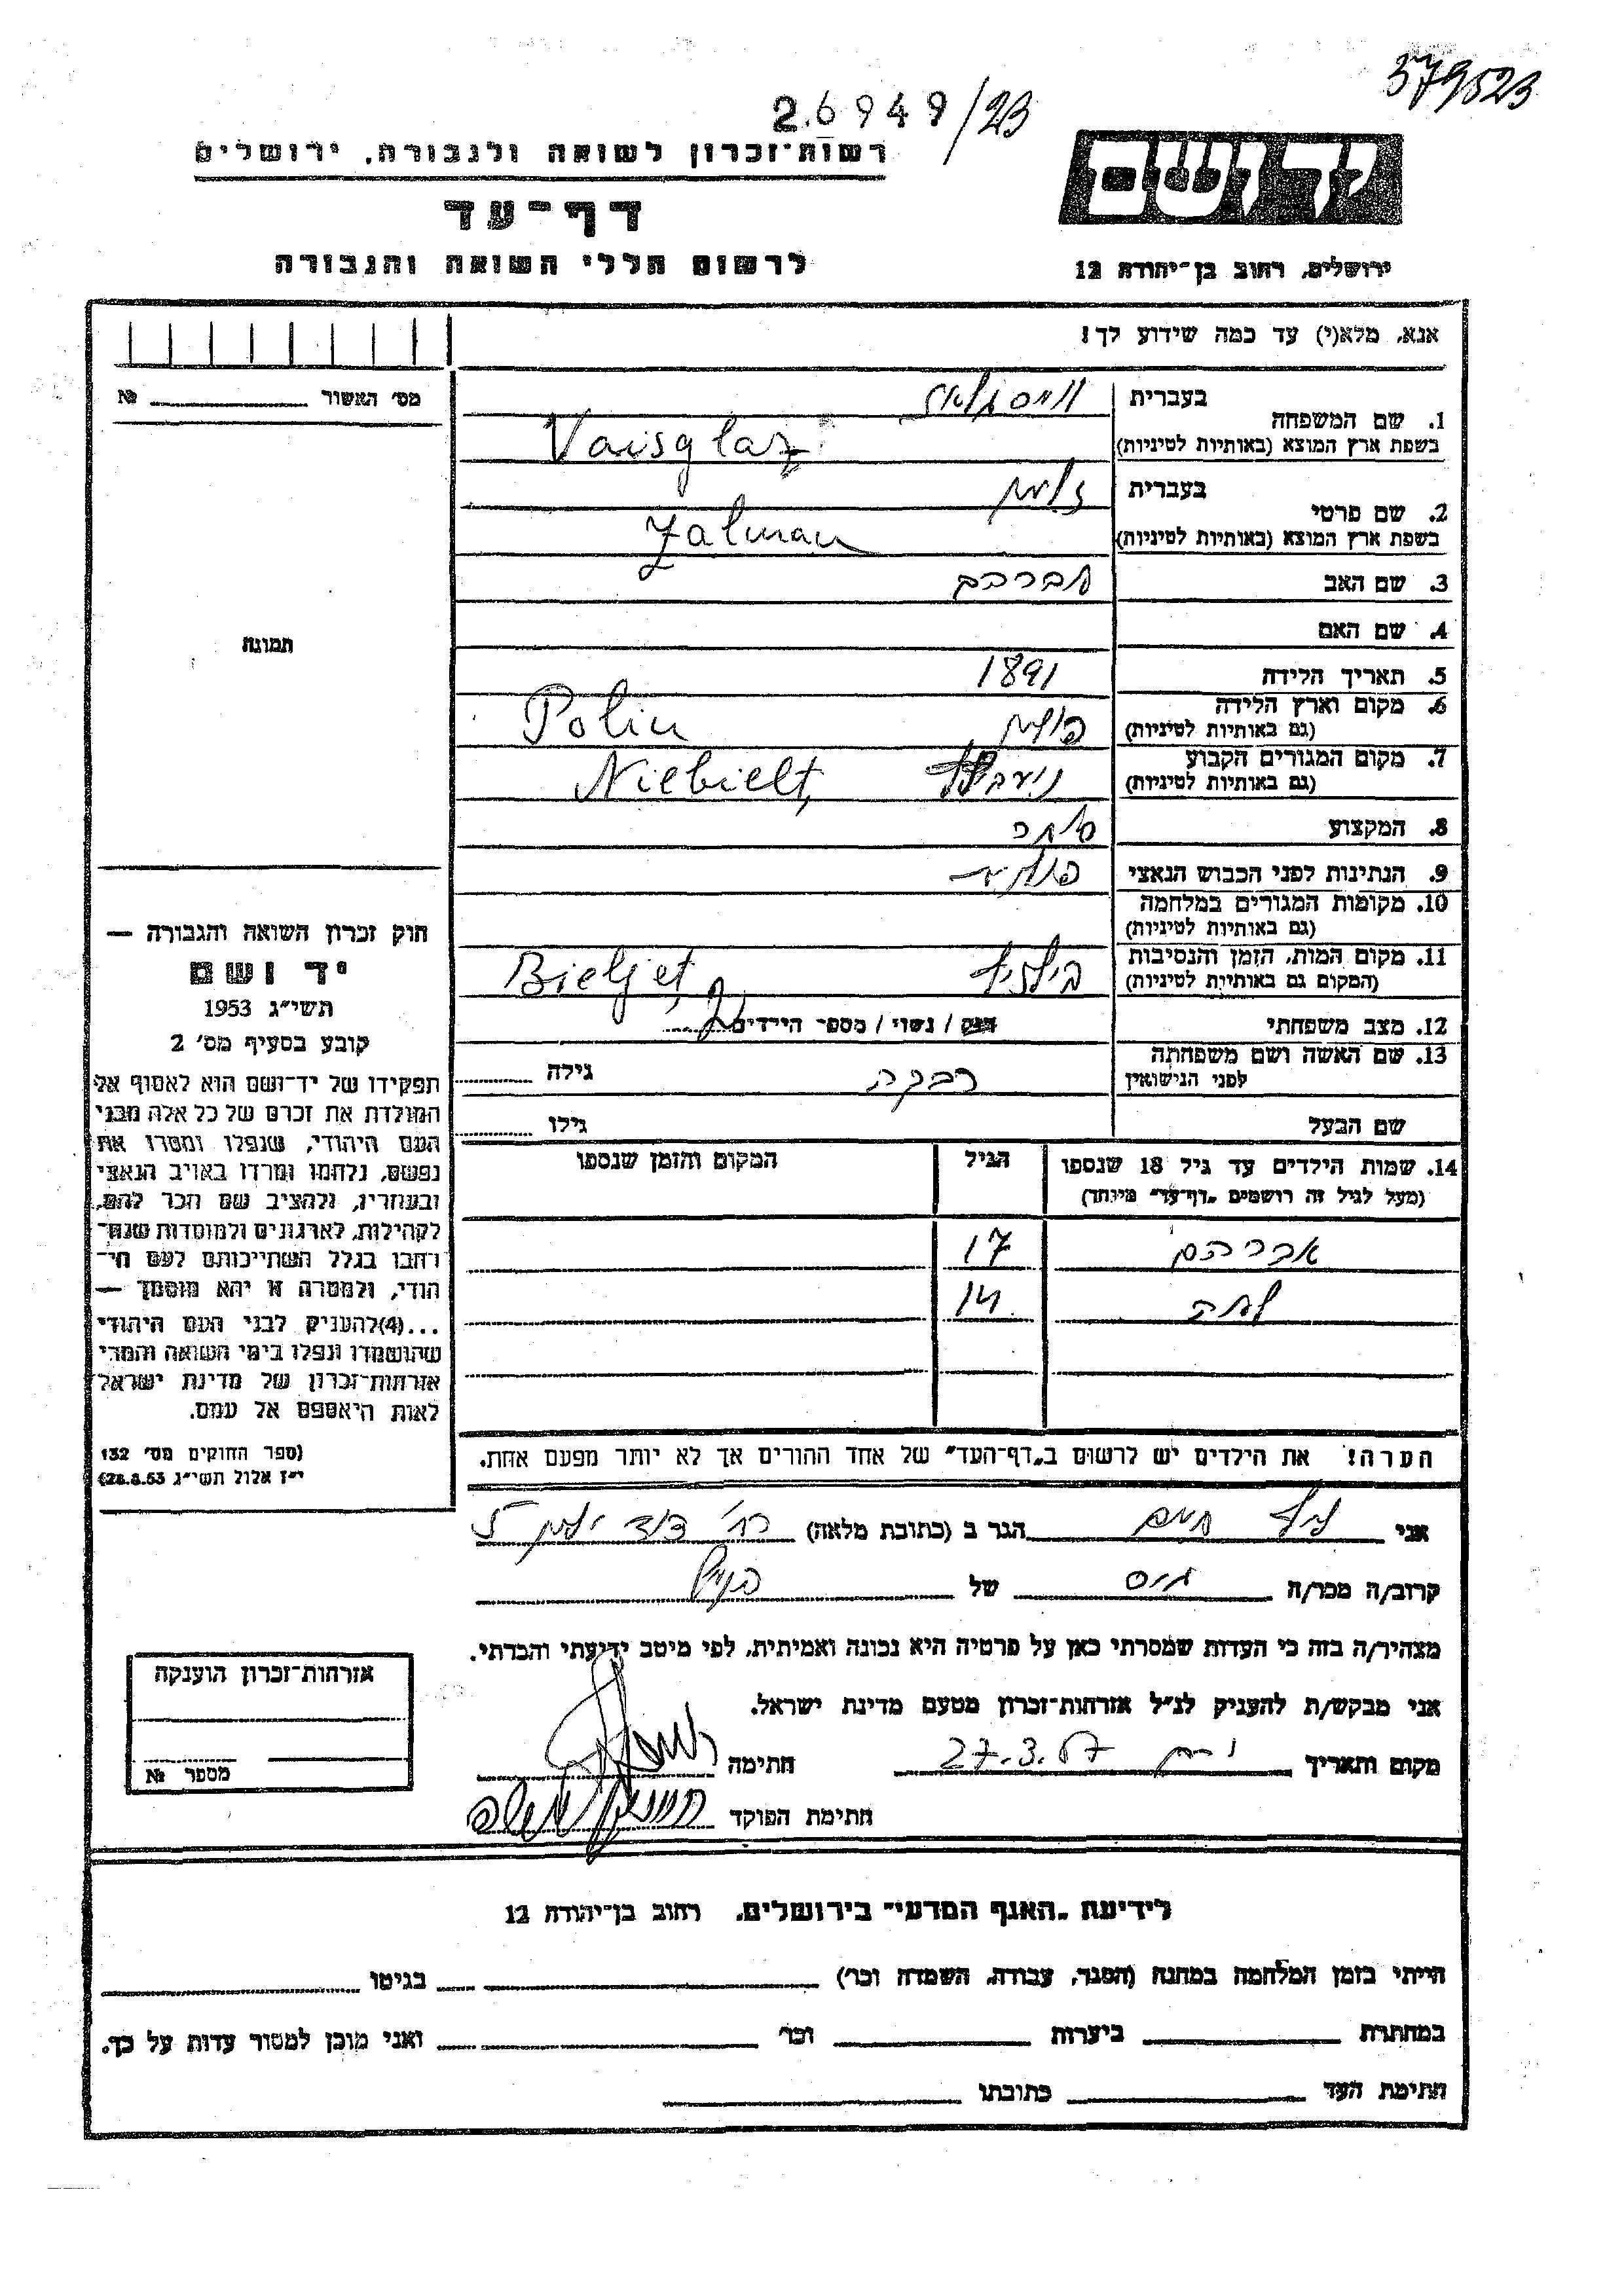 379523
26949/23
יד ושם
רשות־זכרון לשואה ולגבורה, ירושלים
דף־עד
לרשום חללי השואה והגבורה
ירושלים, רחוב בן־יהודה 12
אנא, מלא(י) עד כמה שידוע לך!
מס' האשור № 
1. שם המשפחה
בעברית
בשפת ארץ המוצא (באותיות לטיניות) Vaisglaz
2. שם פרטי
בעברית זלמן
בשפת ארץ המוצא (באותיות לטיניות) Zalman
3. שם האב אברהם
4. שם האם
5. תאריך הלידה 1891
6. מקום וארץ הלידה פולין Polin
(גם באותיות לטיניות)
7. מקום המגורים הקבוע Niebielt,
(גם באותיות לטיניות)
8. המקצוע סוחר
9. הנתינות לפני הכבוש הנאצי
10. מקומות המגורים במלחמה
(גם באותיות לטיניות)
11. מקום המות, הזמן והנסיבות Bieljet,
(המקום גם באותיות לטיניות)
12. מצב משפחתי רווק / נשוי / מספר הילדים 2
13. שם האשה ושם משפחתה רבקה גילה
לפני הנישואין
שם הבעל גילו
14. שמות הילדים עד גיל 18 שנספו הגיל המקום והזמן שנספו
(מעל לגיל זה רושמים "דף־עד" מיוחד)
אברהם 17
חוה 14
הערה! את הילדים יש לרשום ב"דף־העד" של אחד ההורים אך לא יותר מפעם אחת.
תמונה
חוק זכרון השואה והגבורה —
יד ושם
תשי"ג 1953
קובע בסעיף מס' 2
תפקידו של יד־ושם הוא לאסוף אל
המולדת את זכרם של כל אלה מבני
העם היהודי, שנפלו ומסרו את
נפשם, נלחמו ומרדו באויב הנאצי
ובעוזריו, ולהציב שם וזכר להם,
לקהילות, לארגונים ולמוסדות שנח־
רבו בגלל השתייכותם לעם הי־
הודי, ולמטרה זו יהא מוסמך —
...(4) להעניק לבני העם היהודי
שהושמדו ונפלו בימי השואה והמרי
אזרחות־זכרון של מדינת ישראל
לאות היאספם אל עמם.
(ספר החוקים מס' 132
י"ז אלול תשי"ג 28.8.53)
אני חיים הגר ב (כתובת מלאה) רח'
קרוב/ה מכר/ה גיס של
מצהיר/ה בזה כי העדות שמסרתי כאן על פרטיה היא נכונה ואמיתית, לפי מיטב ידיעתי והכרתי.
אני מבקש/ת להעניק לנ"ל אזרחות־זכרון מטעם מדינת ישראל.
מקום ותאריך 27.3.57 חתימה
חתימת הפוקד
אזרחות־זכרון הוענקה
מספר №
לידיעת "האגף המדעי" בירושלים, רחוב בן־יהודה 12
הייתי בזמן המלחמה במחנה (הסגר, עבודה, השמדה וכו') בגיטו
במחתרת ביערות וכו' ואני מוכן למסור עדות על כך.
חתימת העד כתובתו